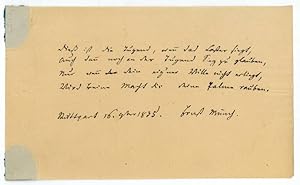 Dieß ist die Tugend, wenn das Laster siegt,
Auch dann noch an der Tugend Sieg zu glauben,
Nur wenn der dein eigner Wille nicht erliegt,
Wird keine Macht dir deine Palme rauben.
Stuttgart 16. 1875. Ernst Münch.